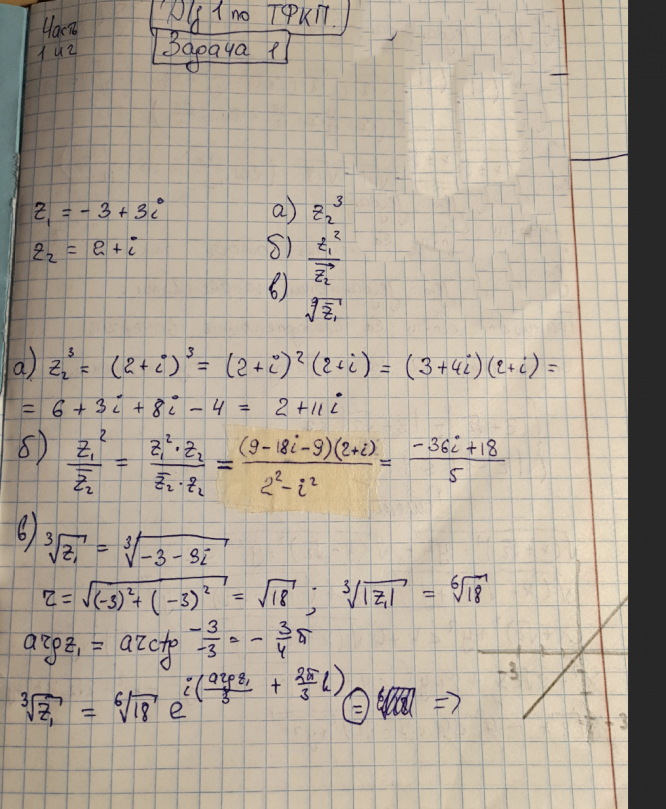 Часть
1 и 2
ДЗ 1 по ТФКП.
Задача 1
z₁ = -3 + 3i
z₂ = 2 + i
а) z₂³
б) z₁²/z̄₂
в) ∛z̄₁
а) z₂³ = (2+i)³ = (2+i)²(2+i) = (3+4i)(2+i) =
= 6 + 3i + 8i - 4 = 2 + 11i
б) z₁²/z̄₂ = z₁²·z₂/z̄₂·z₂ = (9-18i-9)(2+i)/2²-i² = -36i+18/5
в) ∛z̄₁ = ∛-3-3i
r = √(-3)²+(-3)² = √18 ; ∛|z₁| = ⁶√18
arg z₁ = arctg -3/-3 = -3/4 π
∛z̄₁ = ⁶√18 e^i(arg z₁/3 + 2π/3 k) = =>
-3
-3